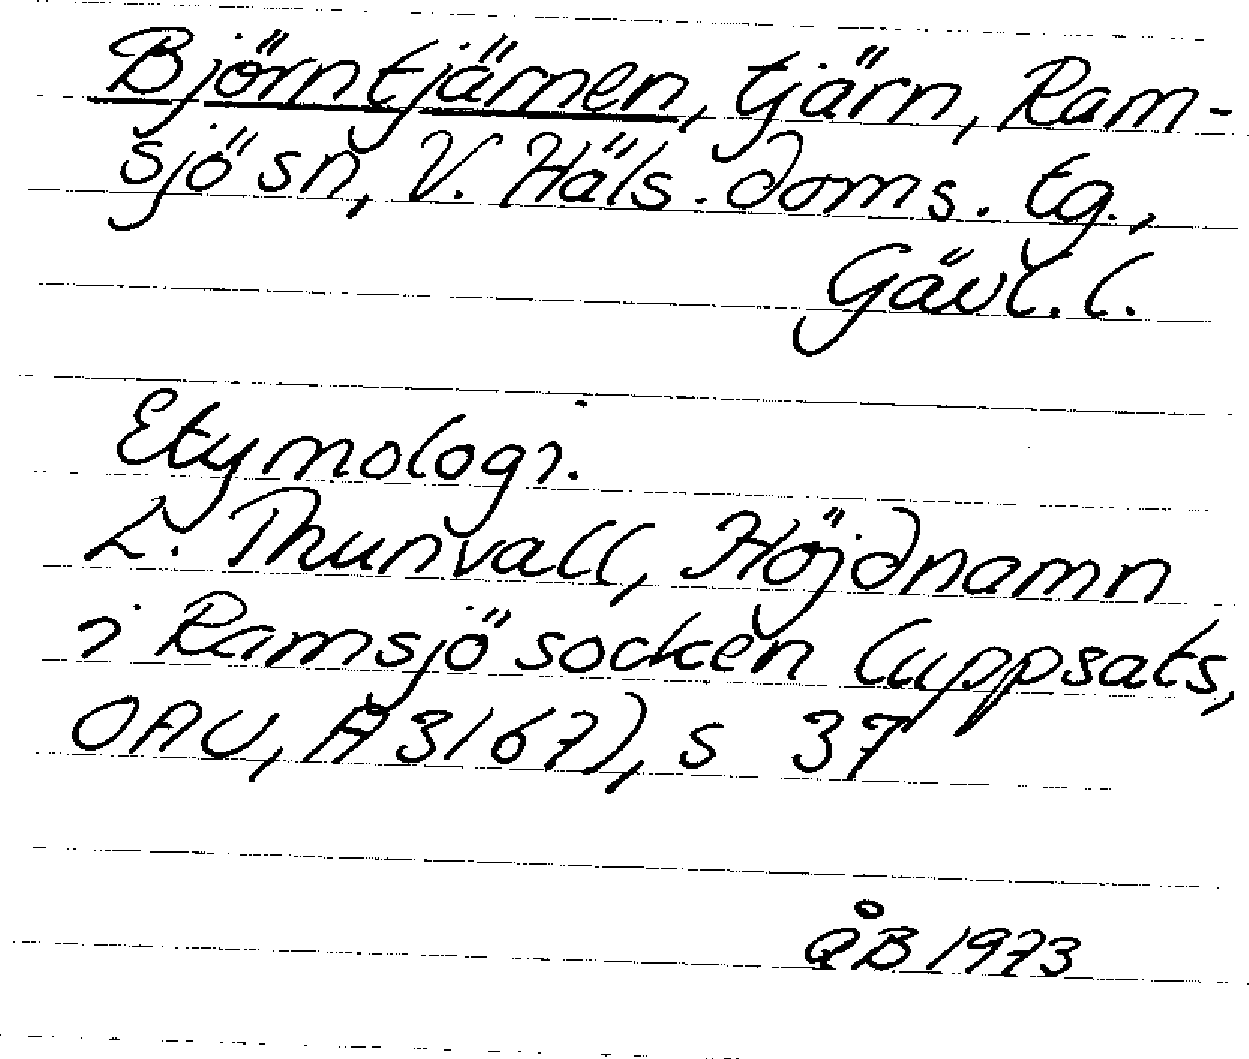 Björntjärnen, tjärn, Ram-
sjö sn, V. Häls. doms. tg.,
Gävl. l.
Etymologi.
L. Thunvall, Höjdnamn
i Ramsjö socken (uppsats,
OAU, A 3167), s 37
ÅB 1973